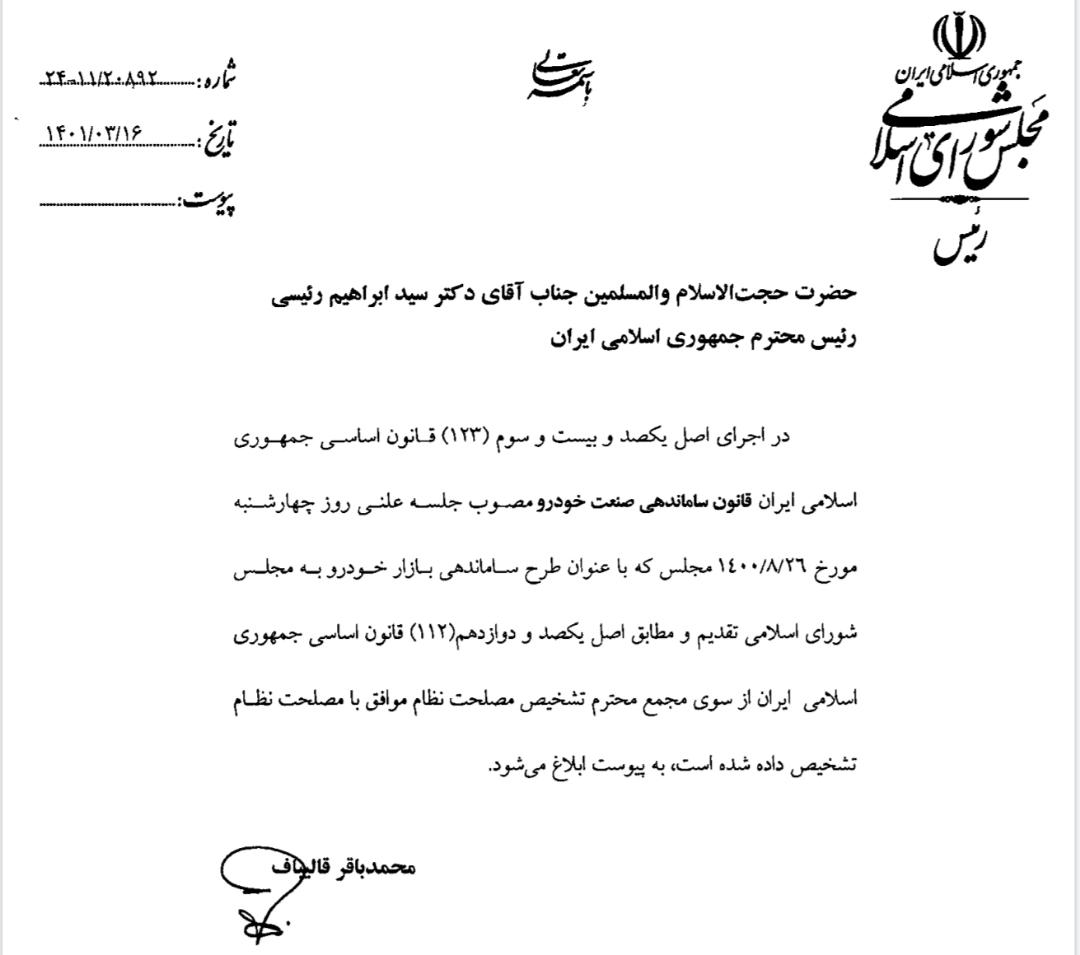 جمهوری اسلامی ایران
مجلس شورای اسلامی
رئیس
باسمه تعالی
شماره: ۲۴-۱۱/۲۰۸۹۲
تاریخ: ۱۴۰۱/۰۳/۱۶
پیوست:
حضرت حجت‌الاسلام والمسلمین جناب آقای دکتر سید ابراهیم رئیسی
رئیس محترم جمهوری اسلامی ایران
در اجرای اصل یکصد و بیست و سوم (۱۲۳) قانون اساسی جمهوری
اسلامی ایران قانون ساماندهی صنعت خودرو مصوب جلسه علنی روز چهارشنبه
مورخ ۱۴۰۰/۸/۲۶ مجلس که با عنوان طرح ساماندهی بازار خودرو به مجلس
شورای اسلامی تقدیم و مطابق اصل یکصد و دوازدهم(۱۱۲) قانون اساسی جمهوری
اسلامی ایران از سوی مجمع محترم تشخیص مصلحت نظام موافق با مصلحت نظام
تشخیص داده شده است، به پیوست ابلاغ می‌شود.
محمدباقر قالیباف